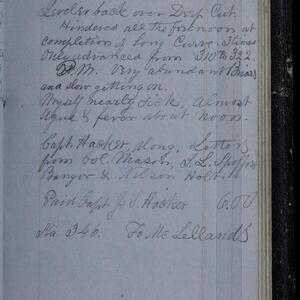 back over Deep Cut.
Hindered all the forenoon at
completion of Long Curve. 3 lines
Only advanced from 310 to 322.
P.M. Very abundant Briars
and slow getting on.
Myself nearly sick, Almost
Ague & fever about noon.
Capt. Hacker, along, Letters
from Col. Mason, S. L.
Bangor & Nelson Holt.
Paid Capt J. S. Hacker 6.00
Sta 346. To McLelland's